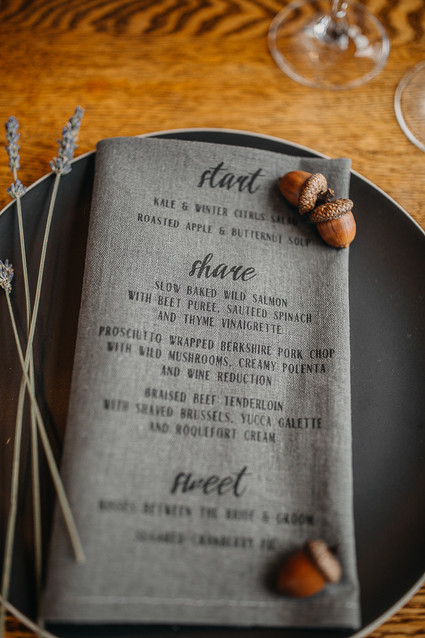 start
KALE & WINTER CITRUS SALAD
ROASTED APPLE & BUTTERNUT SOUP
share
SLOW BAKED WILD SALMON
WITH BEET PUREE, SAUTEED SPINACH
AND THYME VINAIGRETTE
PROSCIUTTO WRAPPED BERKSHIRE PORK CHOP
WITH WILD MUSHROOMS, CREAMY POLENTA
AND WINE REDUCTION
BRAISED BEEF TENDERLOIN
WITH SHAVED BRUSSELS, YUCCA GALETTE
AND ROQUEFORT CREAM
sweet
BETWEEN THE BRIDE & GROOM
SUGARED CRANBERRY PIE